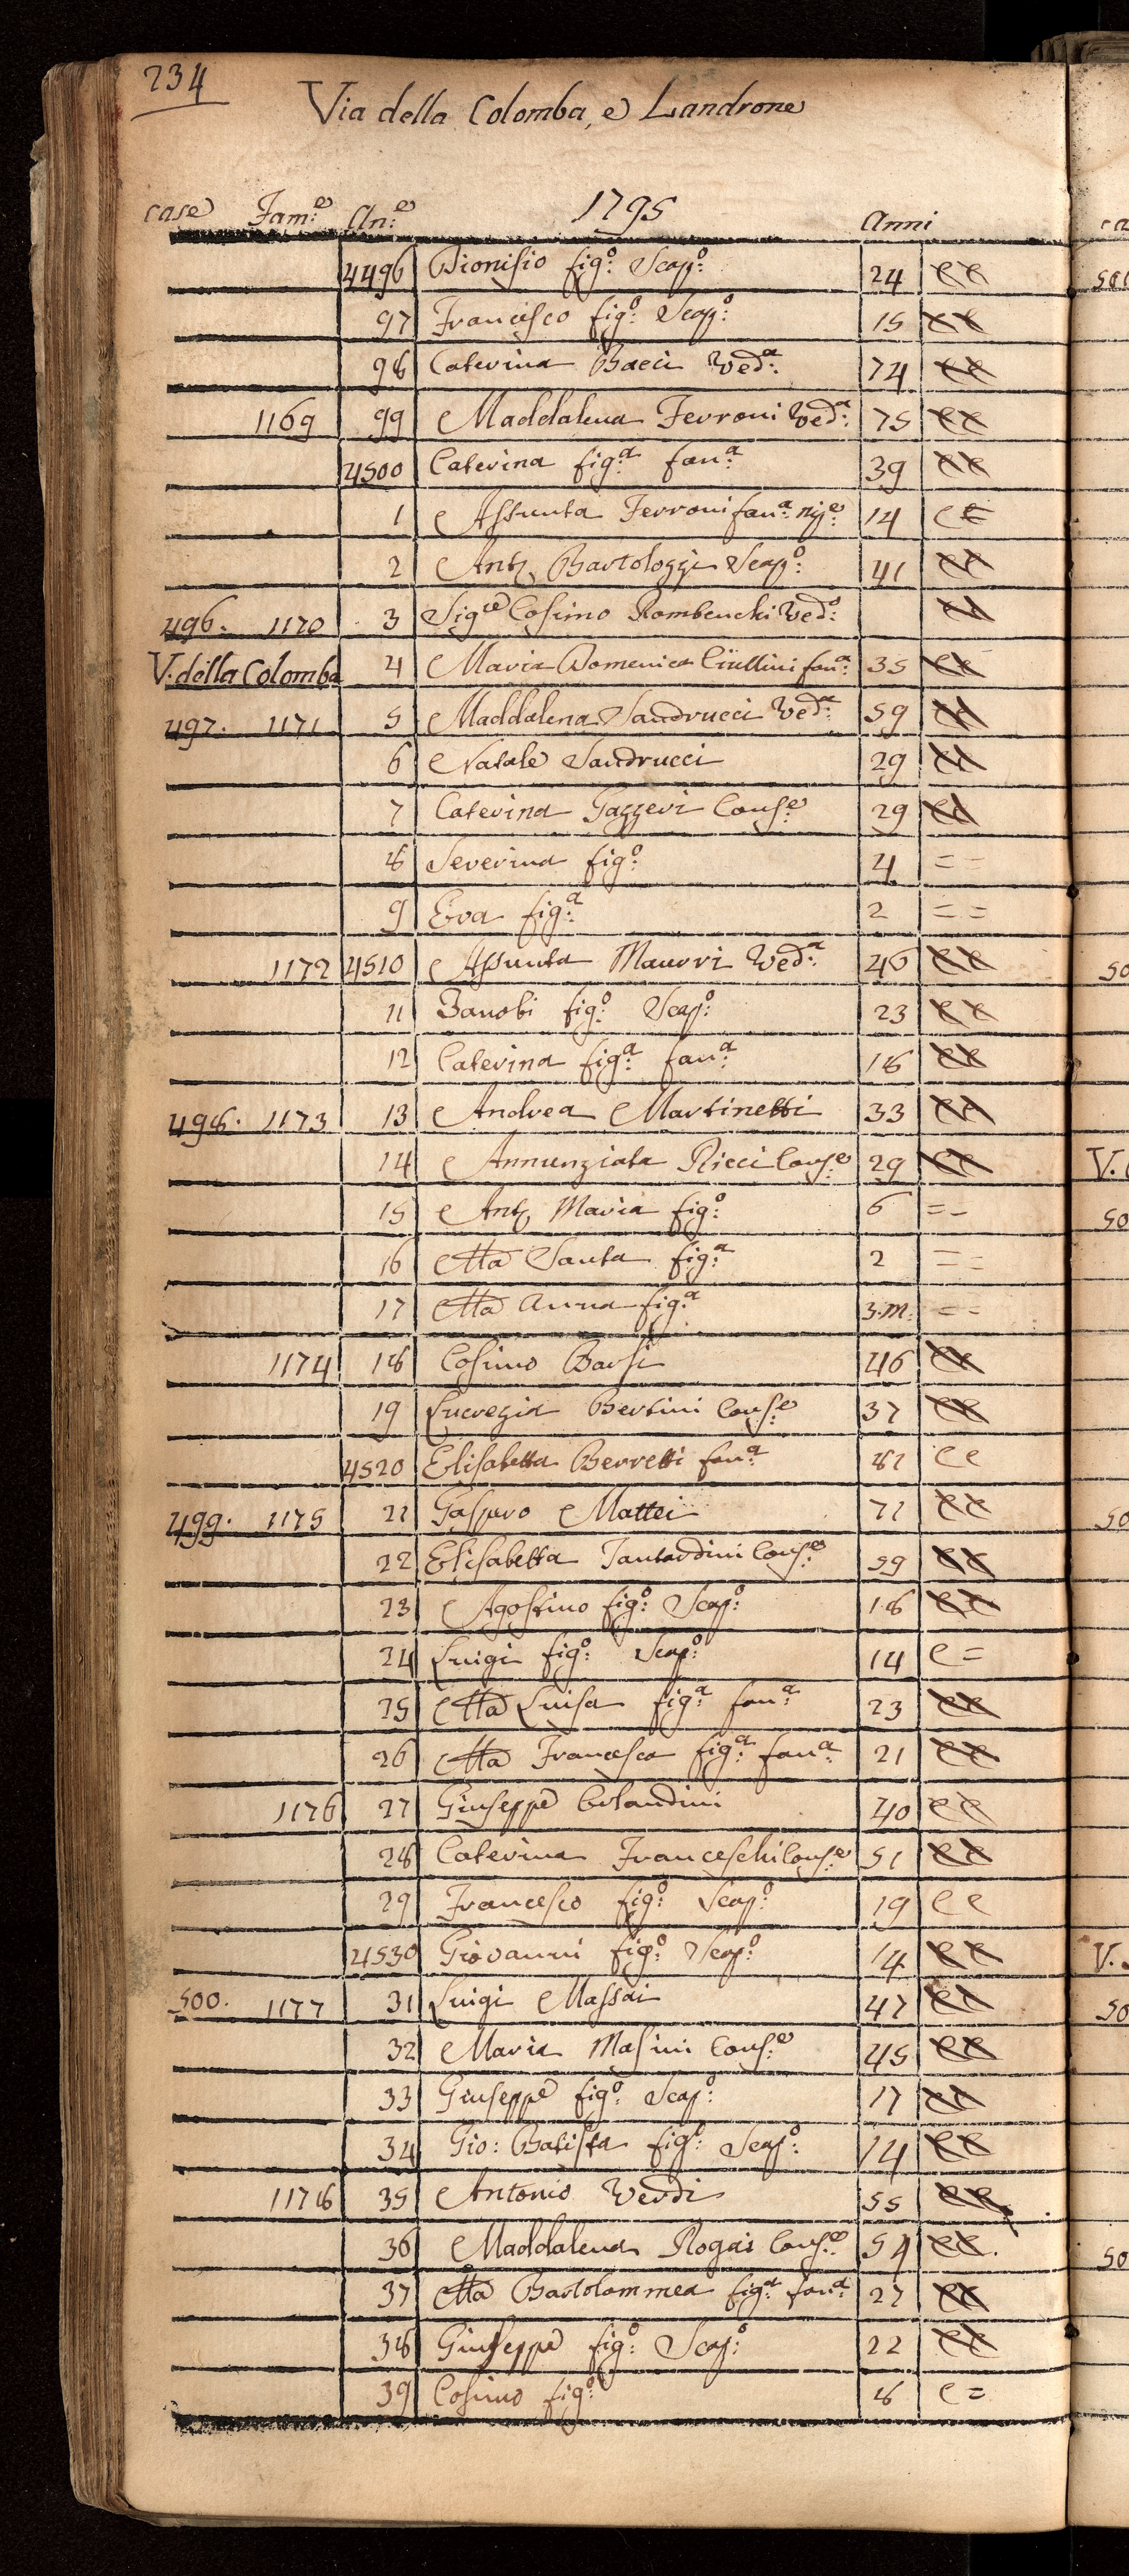 234
Via della Colomba, e Landrone
case Fam:e An:e 1795 Anni
4496 Dionisio fig:o Scap:o 24 c c
97 Francesco fig:o Scap:o 15 c c
98 Caterina Bacci Ved:a 74 c c
1169 99 Maddalena Ferroni Ved:a 75 c c
4500 Caterina fig:a fan:a 39 c c
1 Assunta Ferroni fan:a 14 c c
2 Ant. Bartolozzi Scap:o 41 c c
496. 1170 3 Sig:re Cosimo Ved:o c c
V. della Colomba 4 Maria Domenica fan:a 35 c c
497. 1171 5 Maddalena Sandrucci Ved:a 59 c c
6 Natale Sandrucci 29 c c
7 Caterina Gazzeri Cons:e 29 c c
8 Severina fig:o 4 = =
9 Eva fig:a 2 = =
1172 4510 Assunta Maurri Ved:a 46 c c
11 Zanobi fig:o Scap:o 23 c c
12 Caterina fig:a fan:a 18 c c
498. 1173 13 Andrea Martinetti 33 c c
14 Annunziata Ricci Cons:e 29 c c
15 Ant. Maria fig:o 6 = =
16 Ma Santa fig:a 2 = =
17 Ma Anna fig:a 3.m. = =
1174 18 Cosimo Barsi 46 c c
19 Lucrezia Bertini Cons:e 37 c c
4520 Elisabetta Berretti fan:a 81 c c
499. 1175 21 Gasparo Mattei 71 c c
22 Elisabetta Tantardini Cons:e 59 c c
23 Agostino fig:o Scap:o 18 c c
24 Luigi fig:o Scap:o 14 c =
25 Ma Luisa fig:a fan:a 23 c c
26 Ma Francesca fig:a fan:a 21 c c
1176 27 Giuseppe Orlandini 40 c c
28 Caterina Franceschi Cons:e 51 c c
29 Francesco fig:o Scap:o 19 c c
4530 Giovanni fig:o Scap:o 14 c c
500. 1177 31 Luigi Massai 47 c c
32 Maria Masini Cons:e 45 c c
33 Giuseppe fig:o Scap:o 17 c c
34 Gio: Batista fig:o Scap:o 14 c c
1178 35 Antonio Verdi 55 c c
36 Maddalena Rogai Cons:e 54 c c.
37 Ma Bartolommea fig:a fan:a 27 c c
38 Giuseppe fig:o Scap:o 22 c c
39 Cosimo fig:o 8 c =